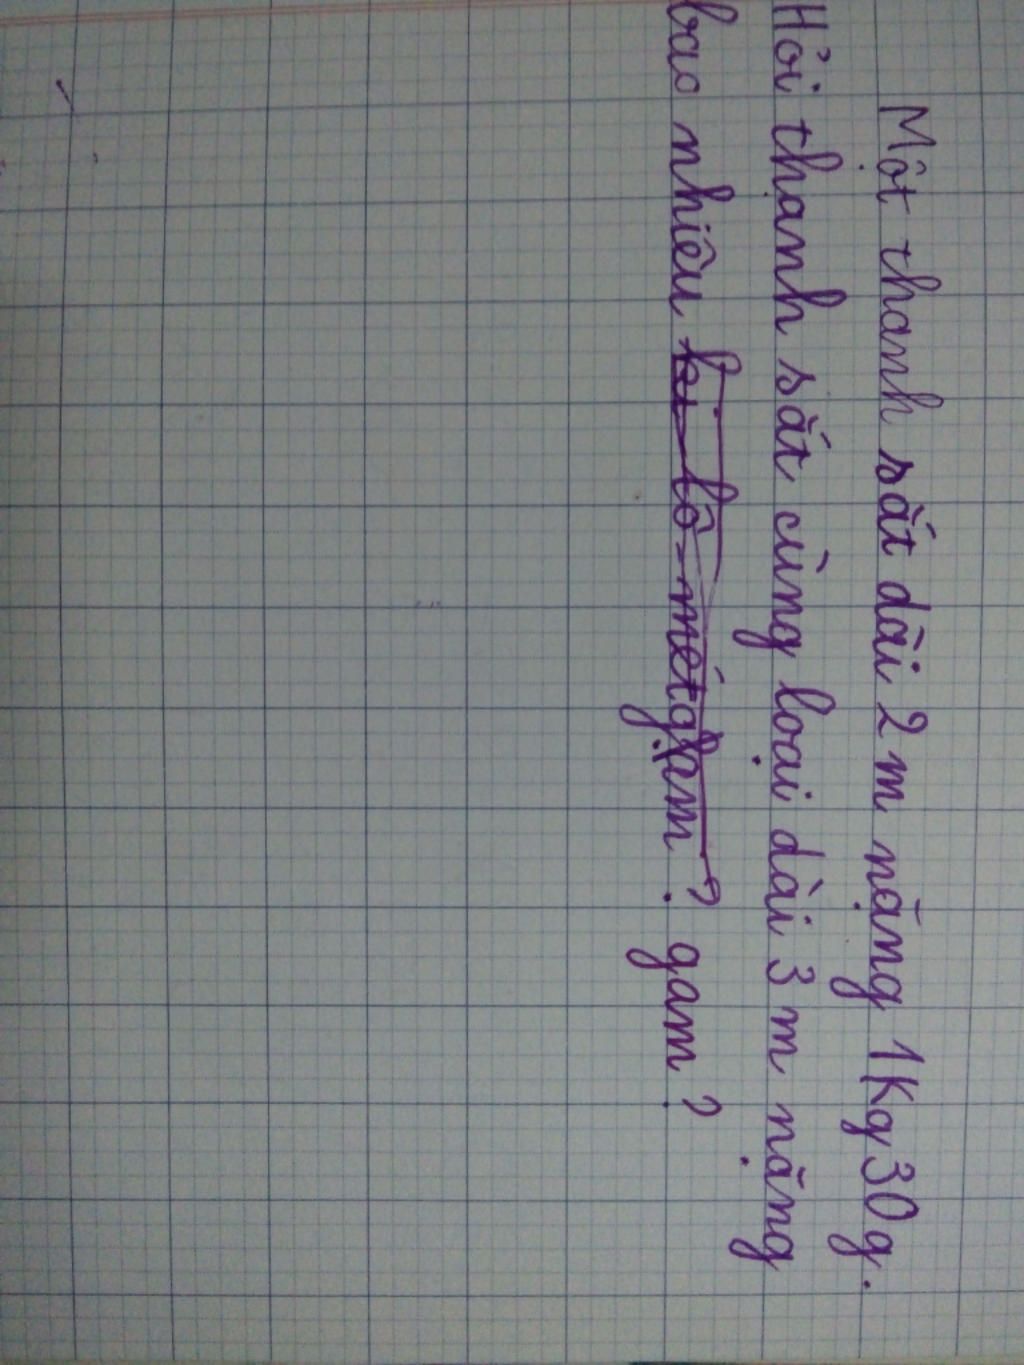 Một thanh sắt dài 2 m nặng 1Kg30g.
Hỏi thanh sắt cùng loại dài 3 m nặng
bao nhiêu ki-lô-métgam? gam?